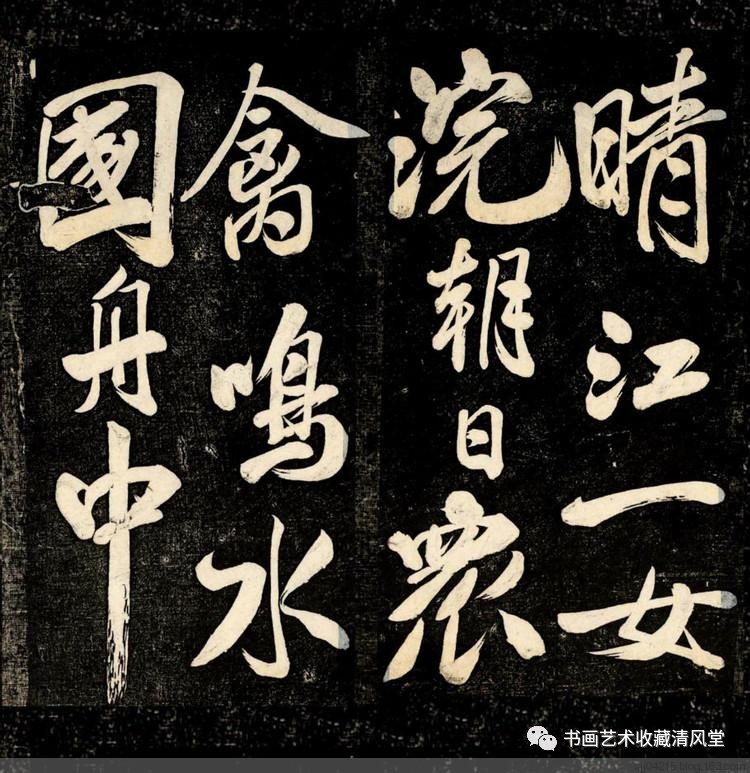 晴江一女
浣朝日眾
禽鳴水
國舟中
书画艺术收藏清风堂